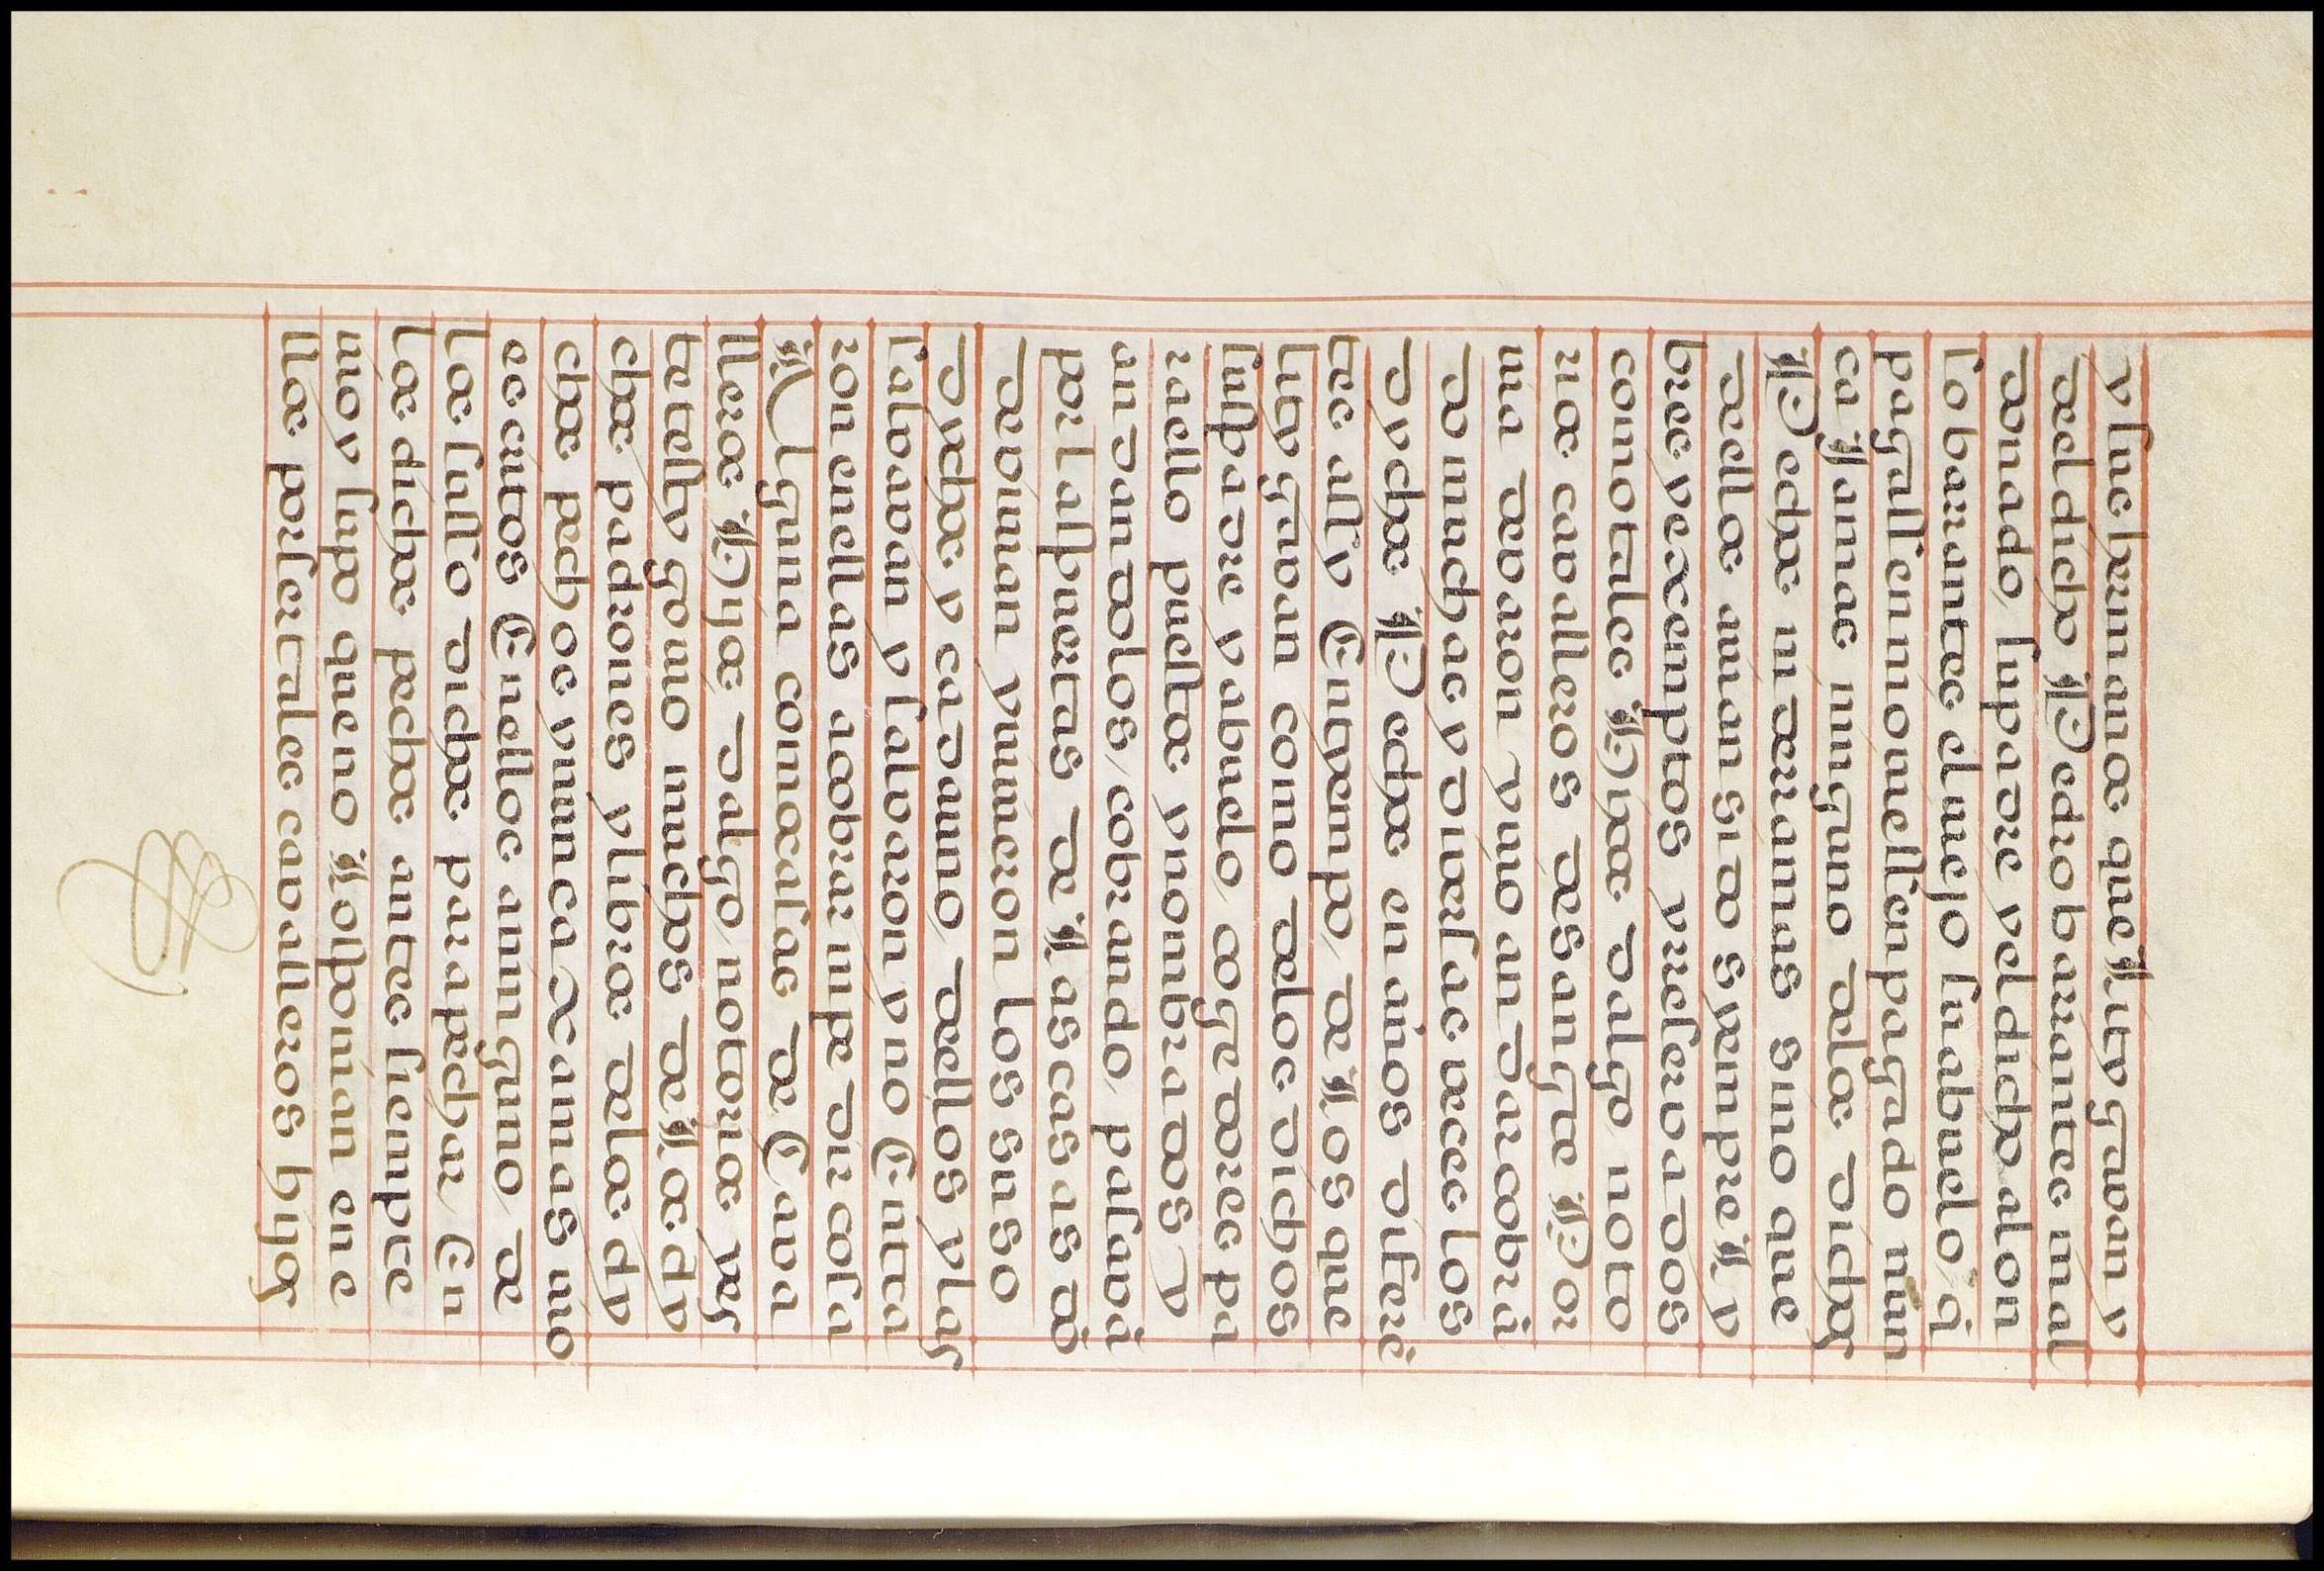 y sue hermanoe que litygaván y
deldicho Pedro barrantes mal
donado, su padre y el dicho alon
so barrantes el viejo su abuelo/ q̃
pagassen ni ouiessen pagado nun
ca Jamas ninguno delos dichos
Pechos ni derramas sino que
dellos an sido siempre ly
bres y exemptos y reseruados
como tales Hijos dalgo noto
rios caualleros de sangre Por
nia dearon y no an dar cobrã
do muchas y diuersas vezes los
dychos Pechos en años difere
tes ally En tyempo de los que
lityguan como delos dichos
su padre y abuelo cogedores pa
raello puestos y nombrados y
andandolos cobrando pasauã
por las puertas de las casas dõ
de viuian y vinieron los suso
dychos y cadauno dellos y las
saluauan y saluaron y no Entra
ron enellas a cobrar ni pedir cosa
Alguna como casas de Caua
lleros Hijos dalgo notorios y es
to testygo vio muchos de los dy
chos padrones y libros delos dy
chos pechos y nunca xamas uio
escritos Enellos a ninguno de
los susso dichos para pechar En
los dichos pechos antes siempre
vio y supo que no los ponian en e
llos por ser tales caualleros hijos